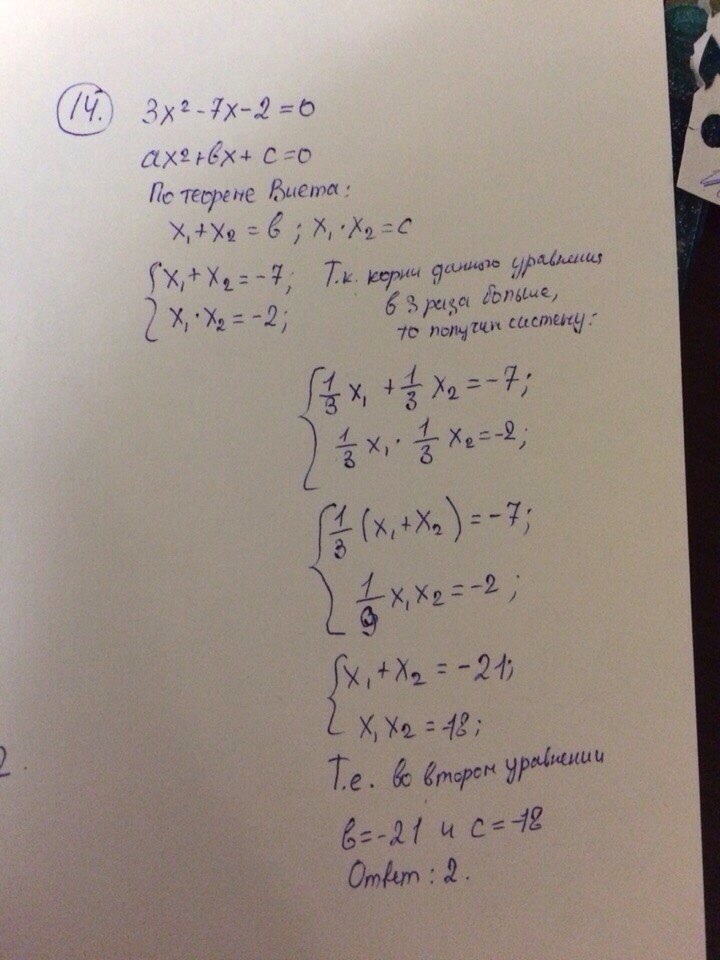 14. 3x² - 7x - 2 = 0
ax² + bx + c = 0
По теореме Виета:
x₁ + x₂ = b ; x₁ · x₂ = c
{ x₁ + x₂ = -7;
x₁ · x₂ = -2;
Т.к. корни данного уравнения
в 3 раза больше,
то получим систему:
{ 1/3 x₁ + 1/3 x₂ = -7;
1/3 x₁ · 1/3 x₂ = -2;
{ 1/3 (x₁ + x₂) = -7;
1/9 x₁ x₂ = -2 ;
{ x₁ + x₂ = -21;
x₁ x₂ = -18;
Т.е. во втором уравнении
b = -21 и c = -18
Ответ : 2.
2.